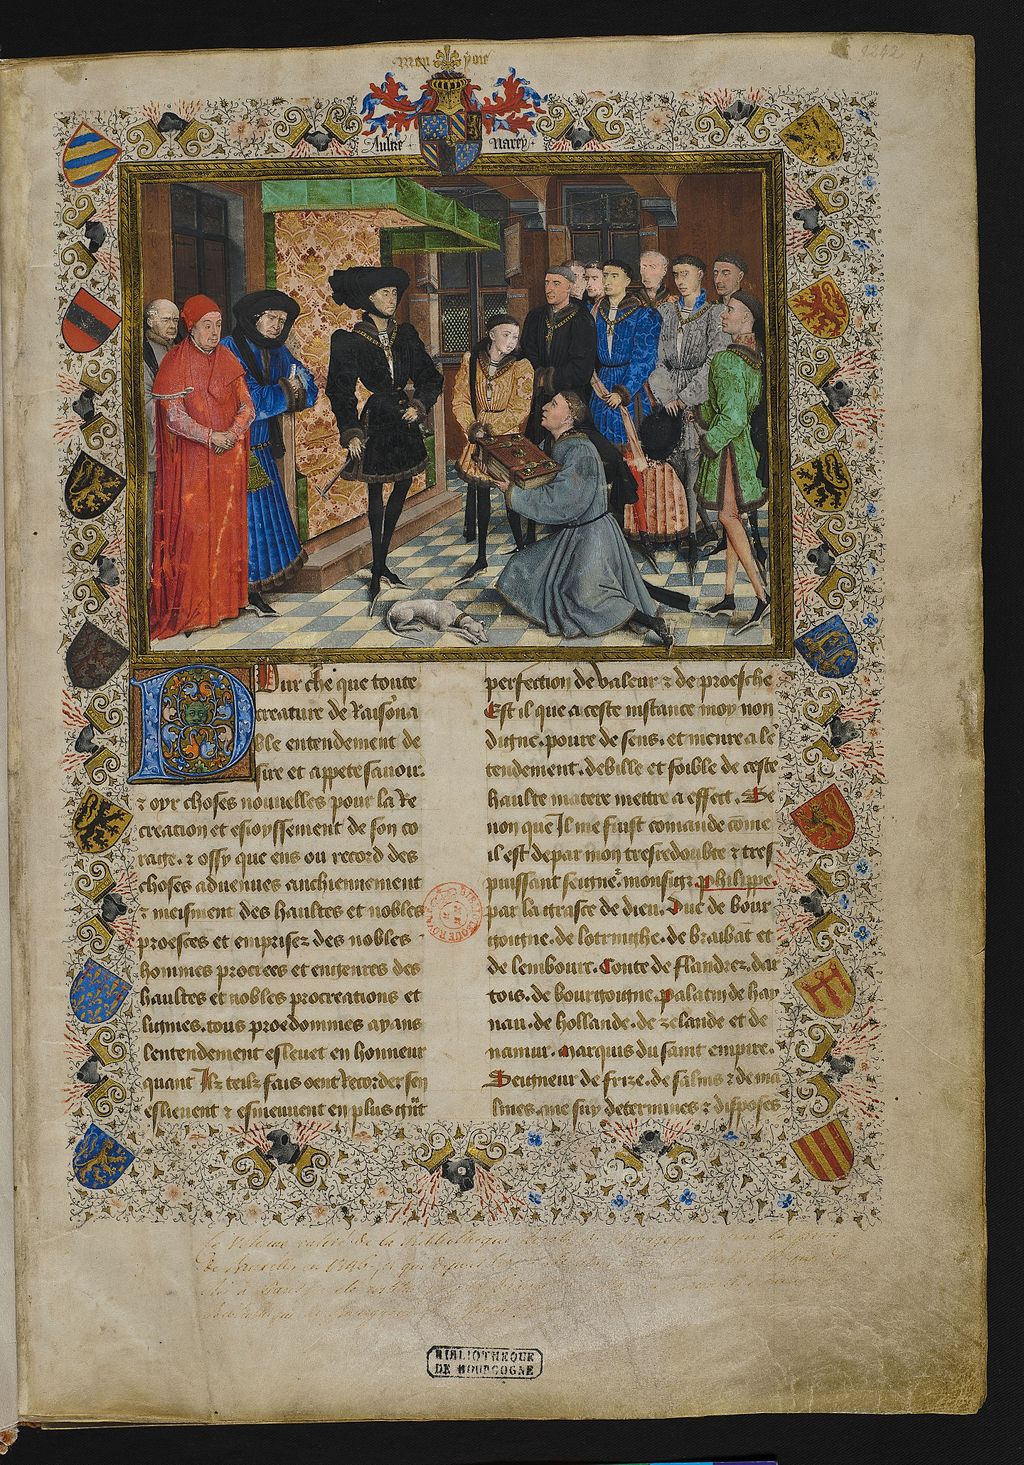 Mon joie
Aultre Narey
Pur che que toute
creature de Raisona
ble entendement de
sire et appete sauoir.
⁊ oyr choses nouuelles pour la Re
creation et esioyssement de son co
rage. ⁊ ossy que ens ou record des
choses aduenues anchiennement
⁊ meisment des haultes et nobles
proesces et emprises des nobles
hommes procrees et engenres des
haultes et nobles procreations et
lignies. tous proedommes ayans
lentendement esleuet en honneur
quant Ilz telz fais oent Recorder sen
eslieuent ⁊ esmeuuent en plus
perfection de valeur ⁊ de proesche
Est il que a ceste instance moy non
digne. poure de sens. et menre
tendement. debille et foible de ceste
haulte matere mettre a effect. Se
non que Il me faist comande come
il est de par mon tresredoubte ⁊ tres
puissant seigneur. monsigr Philippe.
par la grasce de dieu. Duc de bour
gongne. de lotringhe. de braibat et
de lembourc. Conte de flandrez. dar
tois. de bourgongne. palatin de hay
nau. de hollande. de zelande et de
namur. Marquis du saint empire.
Seigneur de frize. de salins ⁊ de ma
lines. me suy determines ⁊ disposes
BIBLIOTHEQUE
DE BOURGOGNE